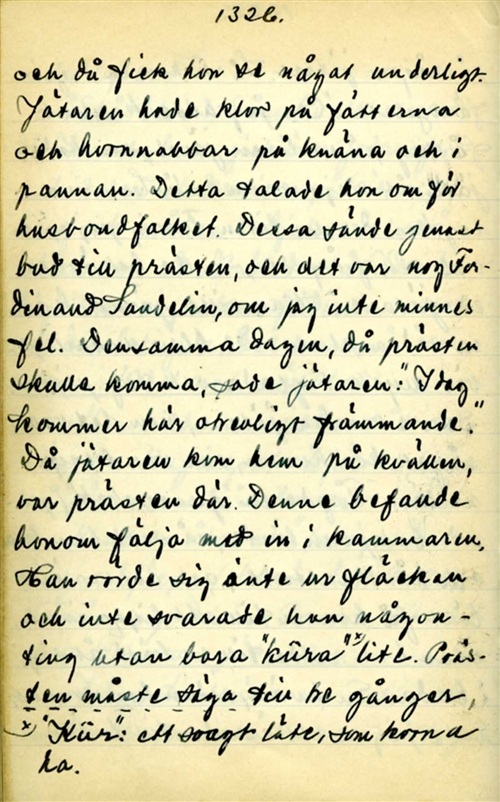 1326.
och då fick hon se något underligt.
Jätaren hade klor på fötterna
och hornnabbar på knäna och i
pannan. Detta talade hon om för
husbondfolket. Dessa sände genast
bud till prästen, och det var nog Fer-
dinand Sandelin, om jag inte minnes
fel. Densamma dagen, då prästen
skulle komma, sade jätaren: "Idag
kommer här otrevligt främmande."
Då jätaren kom hem på kvällen,
var prästen där. Denne befande
honom följa med in i kammaren.
Han rörde sig inte ur fläcken
och inte svarade han någon-
ting utan bara "kūra" x) lite. Präs-
ten måste säga till tre gånger,
x) "Kūr": ett svagt läte, som korna
ha.